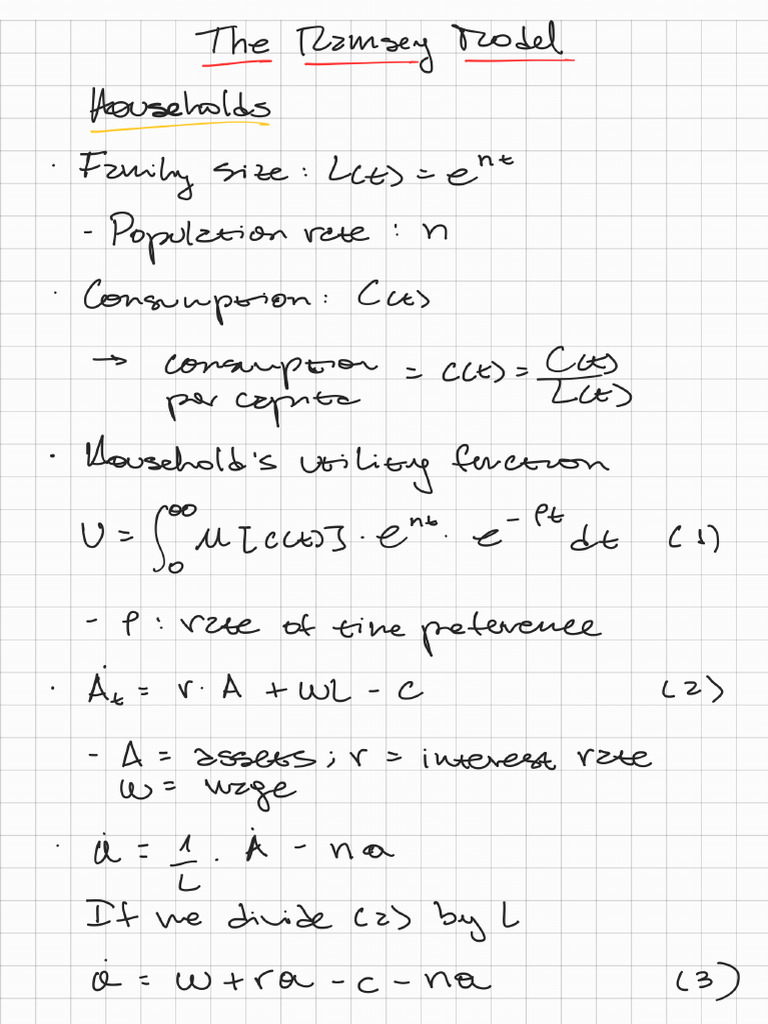 The Ramsey Model
Households
· Family size: L(t) = e^{nt}
- Population rate: n
· Consumption: C(t)
→ consumption per capita = c(t) = C(t)/L(t)
· Household's utility function
U = ∫_0^∞ u[c(t)] · e^{nt} · e^{-ρt} dt (1)
- ρ: rate of time preference
· Ȧ_t = r · A + wL - C (2)
- A = assets; r = interest rate
w = wage
· ȧ = 1/L · Ȧ - na
If we divide (2) by L
ȧ = w + ra - c - na (3)